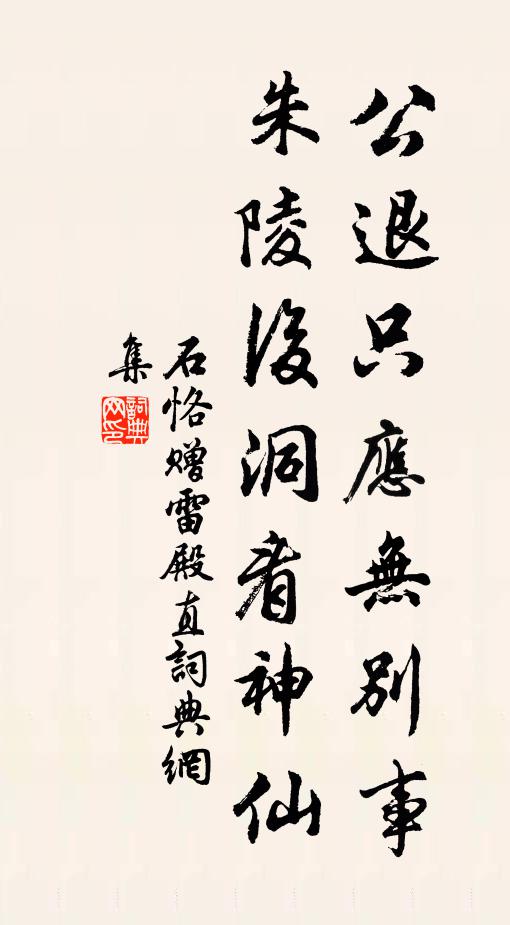 公退只應無別事
朱陵後洞看神仙
石恪贈雷殿直詞典網
集
詞典
网印